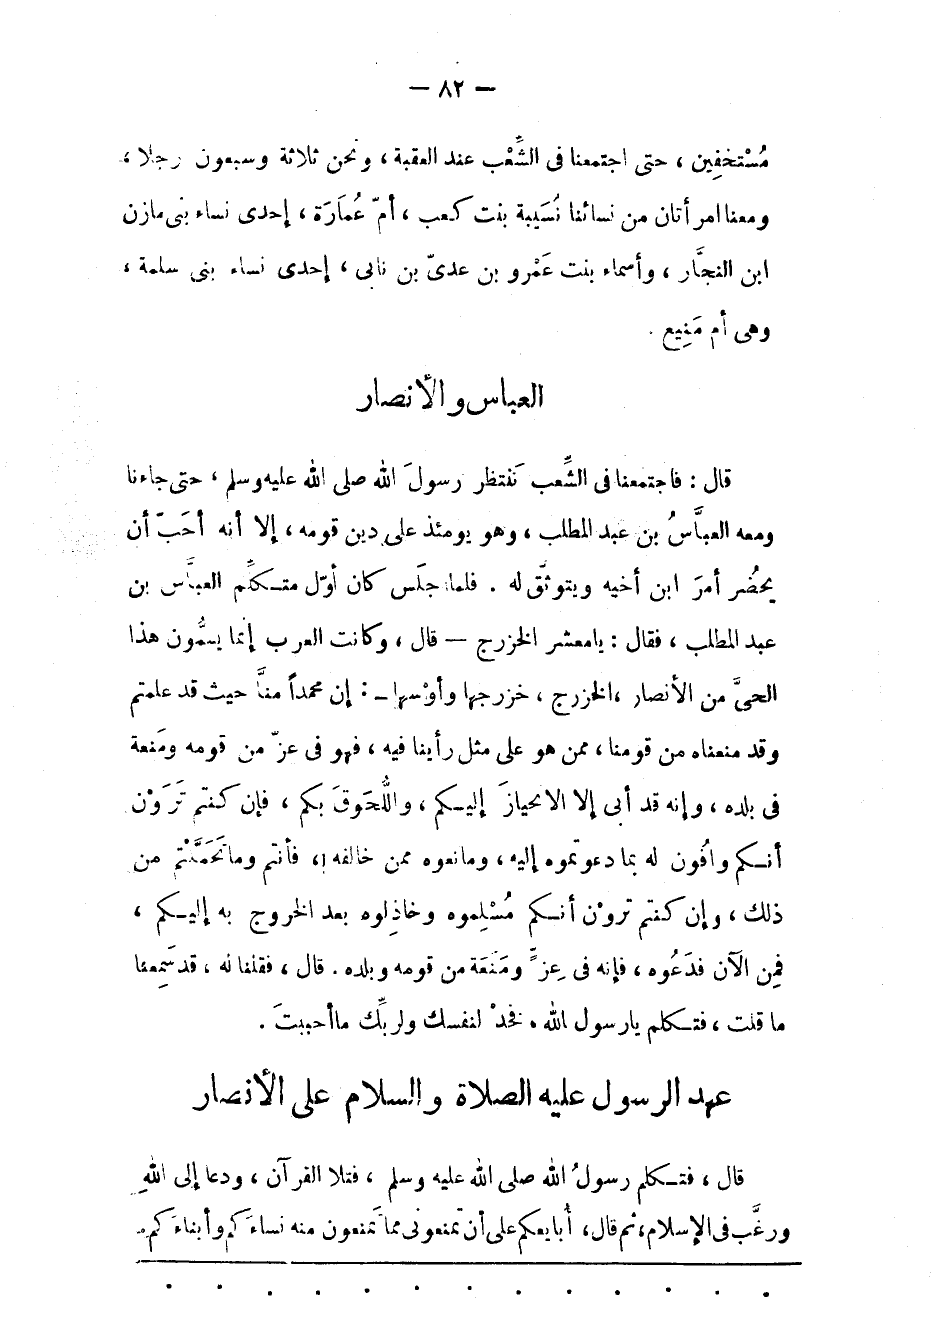 — ٨٢ —
مُسْتخفِين ، حتى اجتمعنا فى الشِّعْب عند العقبة ، ونحن ثلاثة وسبعون رجلا ،
ومعنا امرأتان من نسائنا نُسَيبة بنت كعب ، أمّ عُمَارَة ، إحدى نساء بنى مازن
ابن النجَّار ، وأسماء بنت عَمْرو بن عدىّ بن نابى ، إحدى نساء بنى سلمة ،
وهى أم مَنِيع .
العباس والأنصار
قال : فاجتمعنا فى الشِّعب نَنتظر رسولَ الله صلى الله عليه وسلم ، حتى جاءنا
ومعه العباسُ بن عبد المطلب ، وهو يومئذ على دين قومه ، إلا أنه أحَبّ أن
يحضُر أمرَ ابن أخيه ويتوثّق له . فلما جلَس كان أوّل متكلِّم العبَّاس بن
عبد المطلب ، فقال : يامعشر الخزرج — قال ، وكانت العرب إنما يسمُّون هذا
الحىَّ من الأنصار ،الخزرج ، خزرجها وأوْسها ـ : إن محمداً منَّا حيث قد علمتم
وقد منعناه من قومنا ، ممن هو على مثل رأينا فيه ، فهو فى عزّ من قومه ومَنعة
فى بلده ، وإنه قد أبى إلا الانحيازَ إليكم ، واللُّحوقَ بكم ، فإن كنتم تَرَوْن
أنكم وافُون له بما دعوتموه إليه ، ومانعوه ممن خالفه ، فأنتم وماتَحَمَّلْتم من
ذلك ، وإن كنتم تروْن أنكم مُسْلِموه وخاذِلوه بعد الخروج به إليكم ،
فمِن الآن فدَعُوه ، فإنه فى عِزٍّ ومَنَعَة من قومه وبلده . قال ، فقلنا له ، قد سَمِعنا
ما قلت ، فتكلم يارسول الله ، فخذْ لنفسك ولربِّك ماأحببتَ .
عهد الرسول عليه الصلاة والسلام على الأنصار
قال ، فتكلم رسولُ الله صلى الله عليه وسلم ، فتلا القرآن ، ودعا إلى اللهِ
ورغَّب فى الإسلام، ثم قال، أُبايعكم على أن تمنعونى مما تَمنعون منه نساءَكم وأبناءَكم.